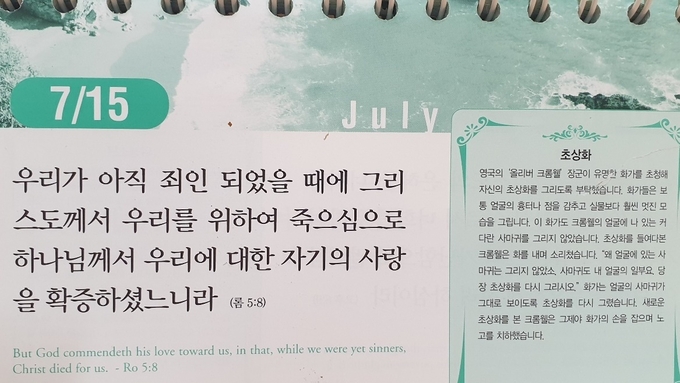 7/15
July
우리가 아직 죄인 되었을 때에 그리
스도께서 우리를 위하여 죽으심으로
하나님께서 우리에 대한 자기의 사랑
을 확증하셨느니라 (롬 5:8)
But God commendeth his love toward us, in that, while we were yet sinners,
Christ died for us. - Ro 5:8
초상화
영국의 '올리버 크롬웰' 장군이 유명한 화가를 초청해
자신의 초상화를 그리도록 부탁했습니다. 화가들은 보
통 얼굴의 흉터나 점을 감추고 실물보다 훨씬 멋진 모
습을 그립니다. 이 화가도 크롬웰의 얼굴에 나 있는 커
다란 사마귀를 그리지 않았습니다. 초상화를 들여다본
크롬웰은 화를 내며 소리쳤습니다. "왜 얼굴에 있는 사
마귀는 그리지 않았소, 사마귀도 내 얼굴의 일부요, 당
장 초상화를 다시 그리시오." 화가는 얼굴의 사마귀가
그대로 보이도록 초상화를 다시 그렸습니다. 새로운
초상화를 본 크롬웰은 그제야 화가의 손을 잡으며 노
고를 치하했습니다.